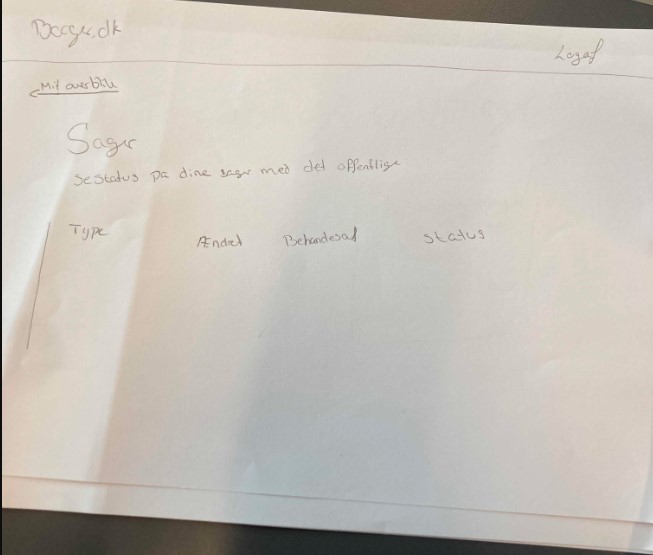 Borger.dk
Log af
Mit overblik
Sager
se status på dine sager med det offentlige
Type Ændret Behandles af status